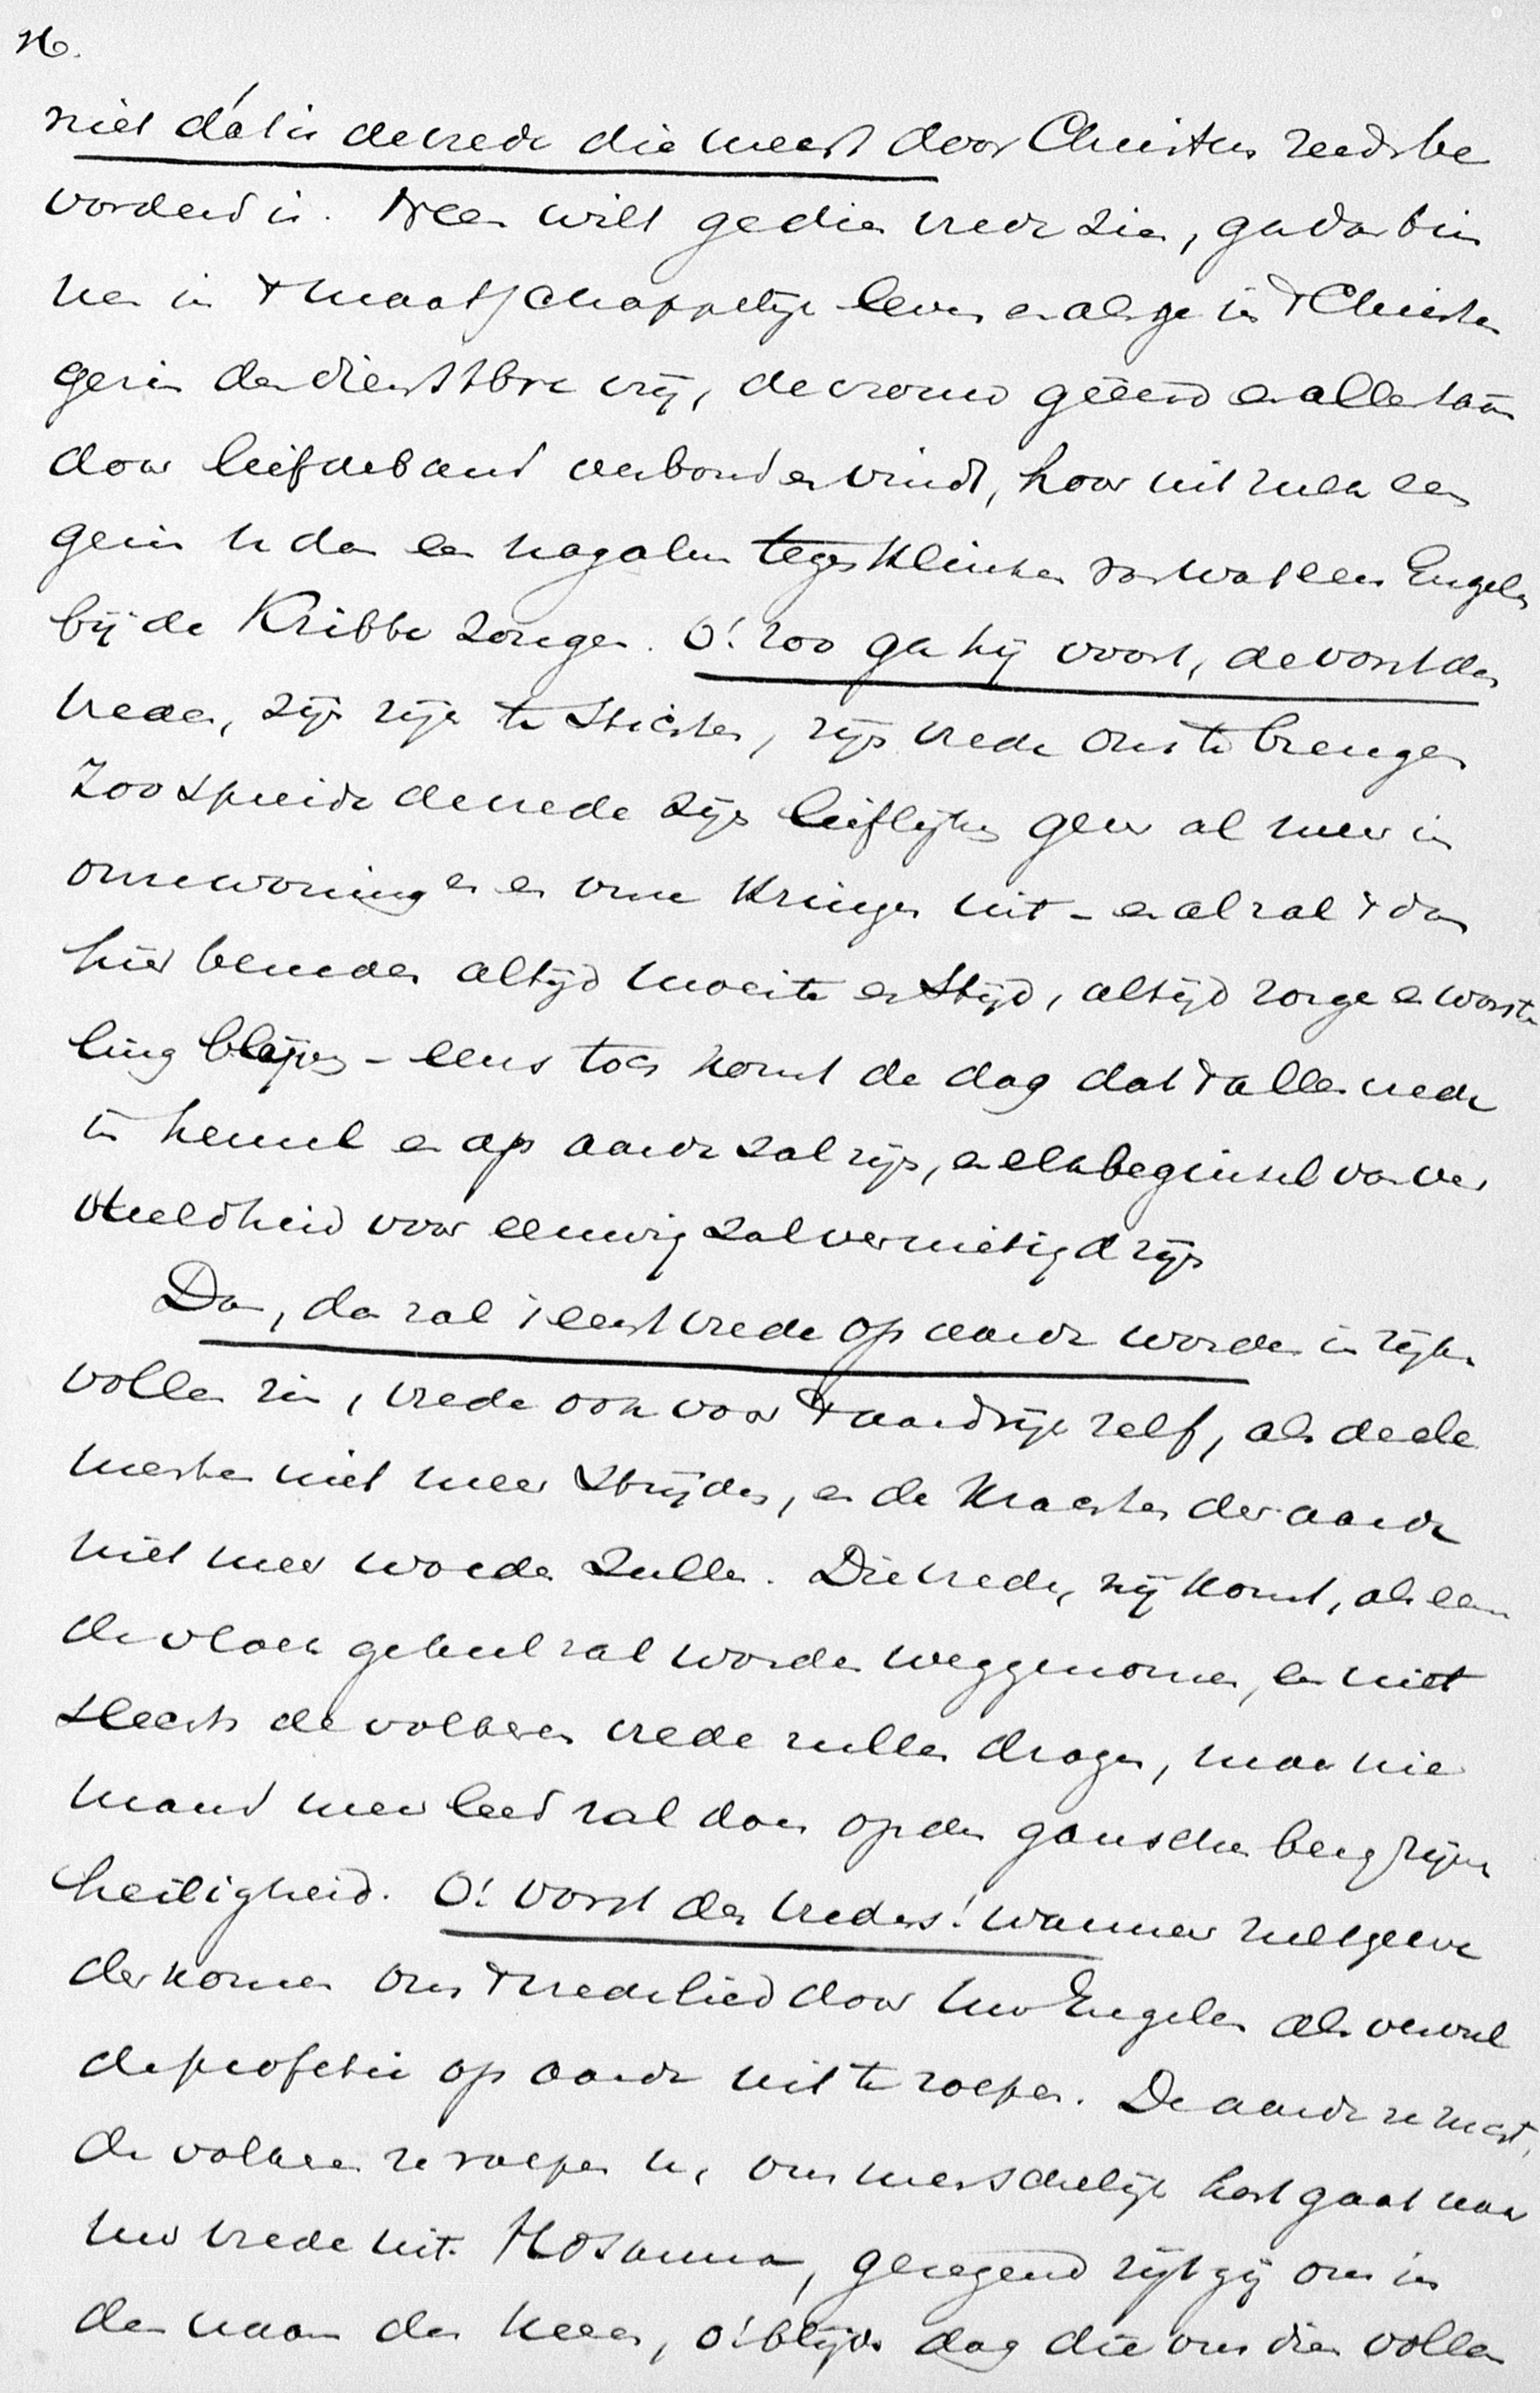 niet dát is de vrede die meest door Christus reeds be
vorderd is. Neen wilt ge dien vrede zien, ga dan bin
nen in 't maatschappelijk leven en als ge in 't Christen
gezin den dienstbre vrij, de vrouw geëerd en allen saâm
door liefdeband verbonden vindt, hoor uit zulk een
gezin u dan een nagalm tegenklinken van wat een Engelen
bij de Kribbe zongen. O! zoo ga hij voort, de vorst des
vredes, zijn rijk te stichten, zijn vrede ons te brengen
Zoo spreide de vrede zijn lieflijken geur al meer in
onze woningen en onze kringen uit - en al zal 't dan
hier beneden altijd moeite en strijd, altijd zorge en worste
ling blijven - eens toch komt de dag dat 't alles vrede
in hemel en op aarde zal zijn, en elk beginsel van ver
deeldheid voor eeuwig zal vernietigd zijn
Dan, dan zal 't eerst vrede op aarde worden in rijken
vollen zin, vrede ook voor 't aardrijk zelf, als de ele
menten niet meer strijden, en de krachten der aarde
niet meer woeden zullen. Die vrede, hij komt, als eens
de vloek geheel zal worden weggenomen, en niet
slechts de volkeren vrede zullen dragen, maar nie
mand meer leed zal doen op den ganschen berg zijner
heiligheid. O! Vorst des vredes! wanneer zult ge we
derkomen om 't vredelied door uw Engelen als vervul
de profetie op aarde uit te roepen. De aarde ze zucht,
de volkeren ze roepen u, ons menschelijk hart gaat naar
uw vrede uit. Hosanna, gezegend zijt gij ons in
den naam des Heeren, o! blijde dag die ons dien vollen